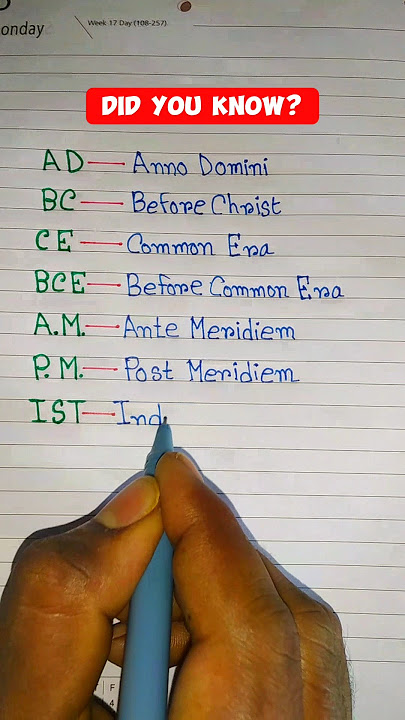 onday
Week 17 Day (108-257)
DID YOU KNOW?
AD — Anno Domini
BC — Before Christ
CE — Common Era
BCE — Before Common Era
A.M. — Ante Meridiem
P.M. — Post Meridiem
IST — Ind
F
4